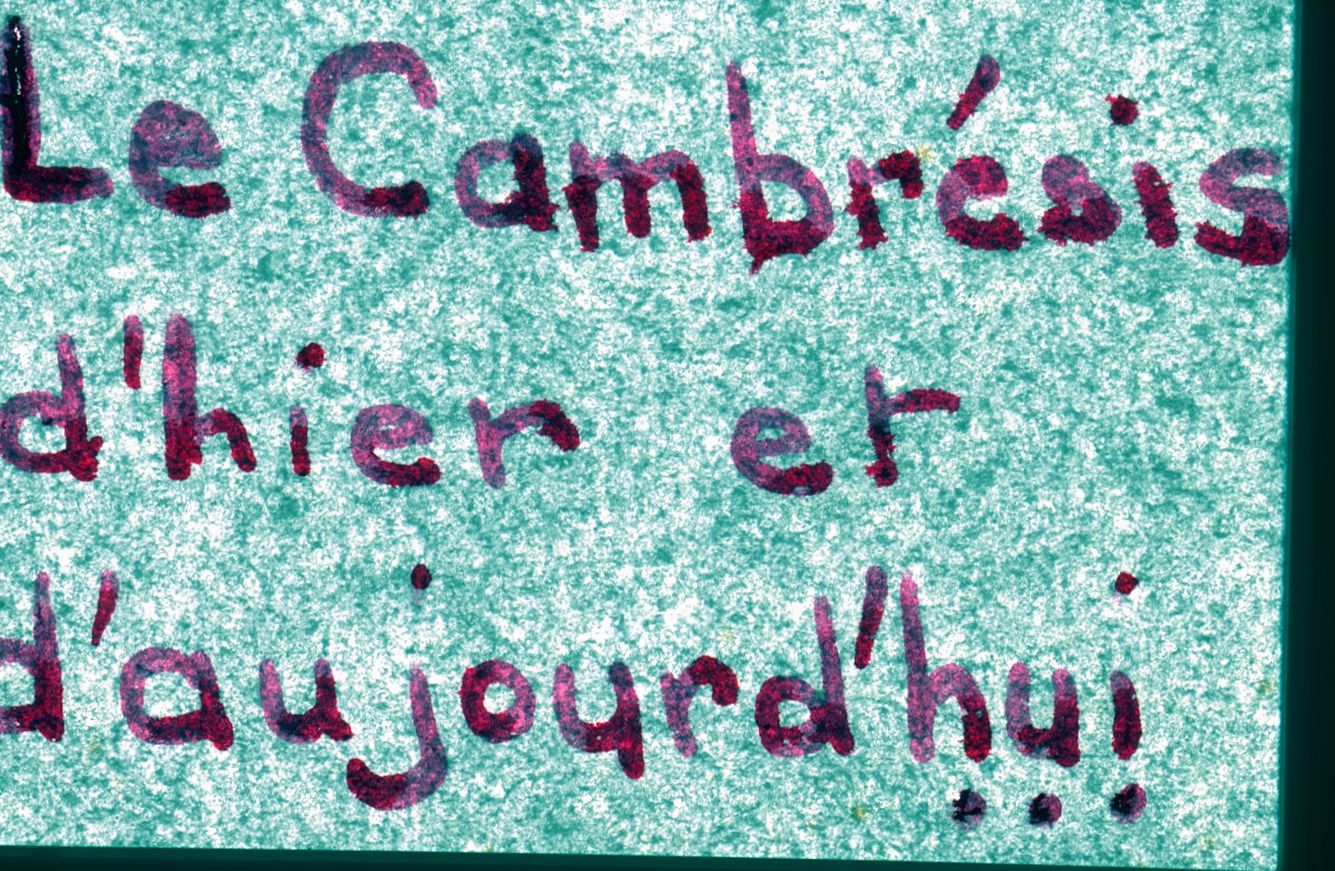 Le Cambrésis
d'hier et
d'aujourd'hui...